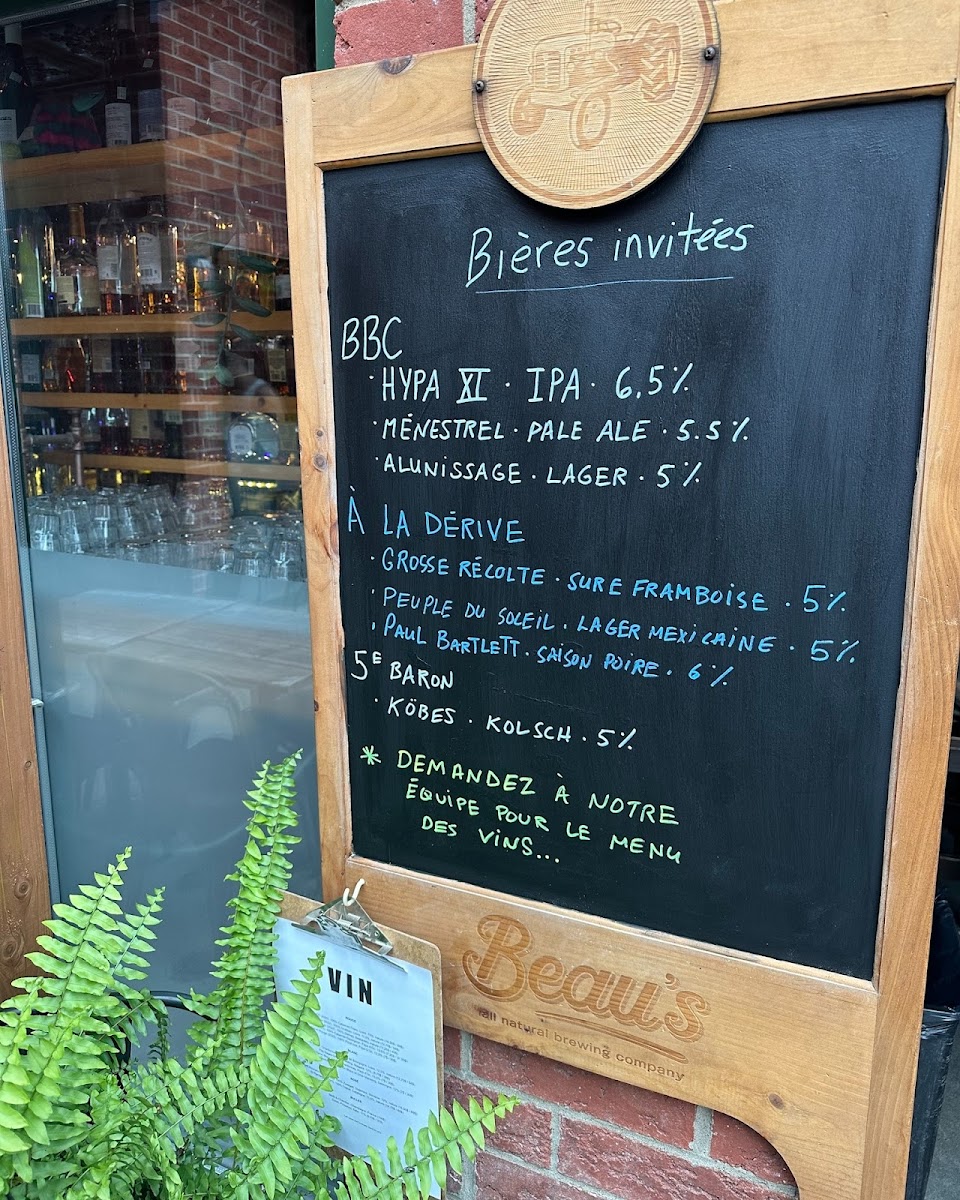 Bières invitées
BBC
· HYPA XI · IPA · 6,5%
· MÉNESTREL · PALE ALE · 5.5%
· ALUNISSAGE · LAGER · 5%
À LA DÉRIVE
· GROSSE RÉCOLTE · SURE FRAMBOISE · 5%
· PEUPLE DU SOLEIL · LAGER MEXICAINE · 5%
· PAUL BARTLETT · SAISON POIRE · 6%
5E BARON
· KÖBES · KOLSCH · 5%
* DEMANDEZ À NOTRE
ÉQUIPE POUR LE MENU
DES VINS...
Beau's
all natural brewing company
VIN